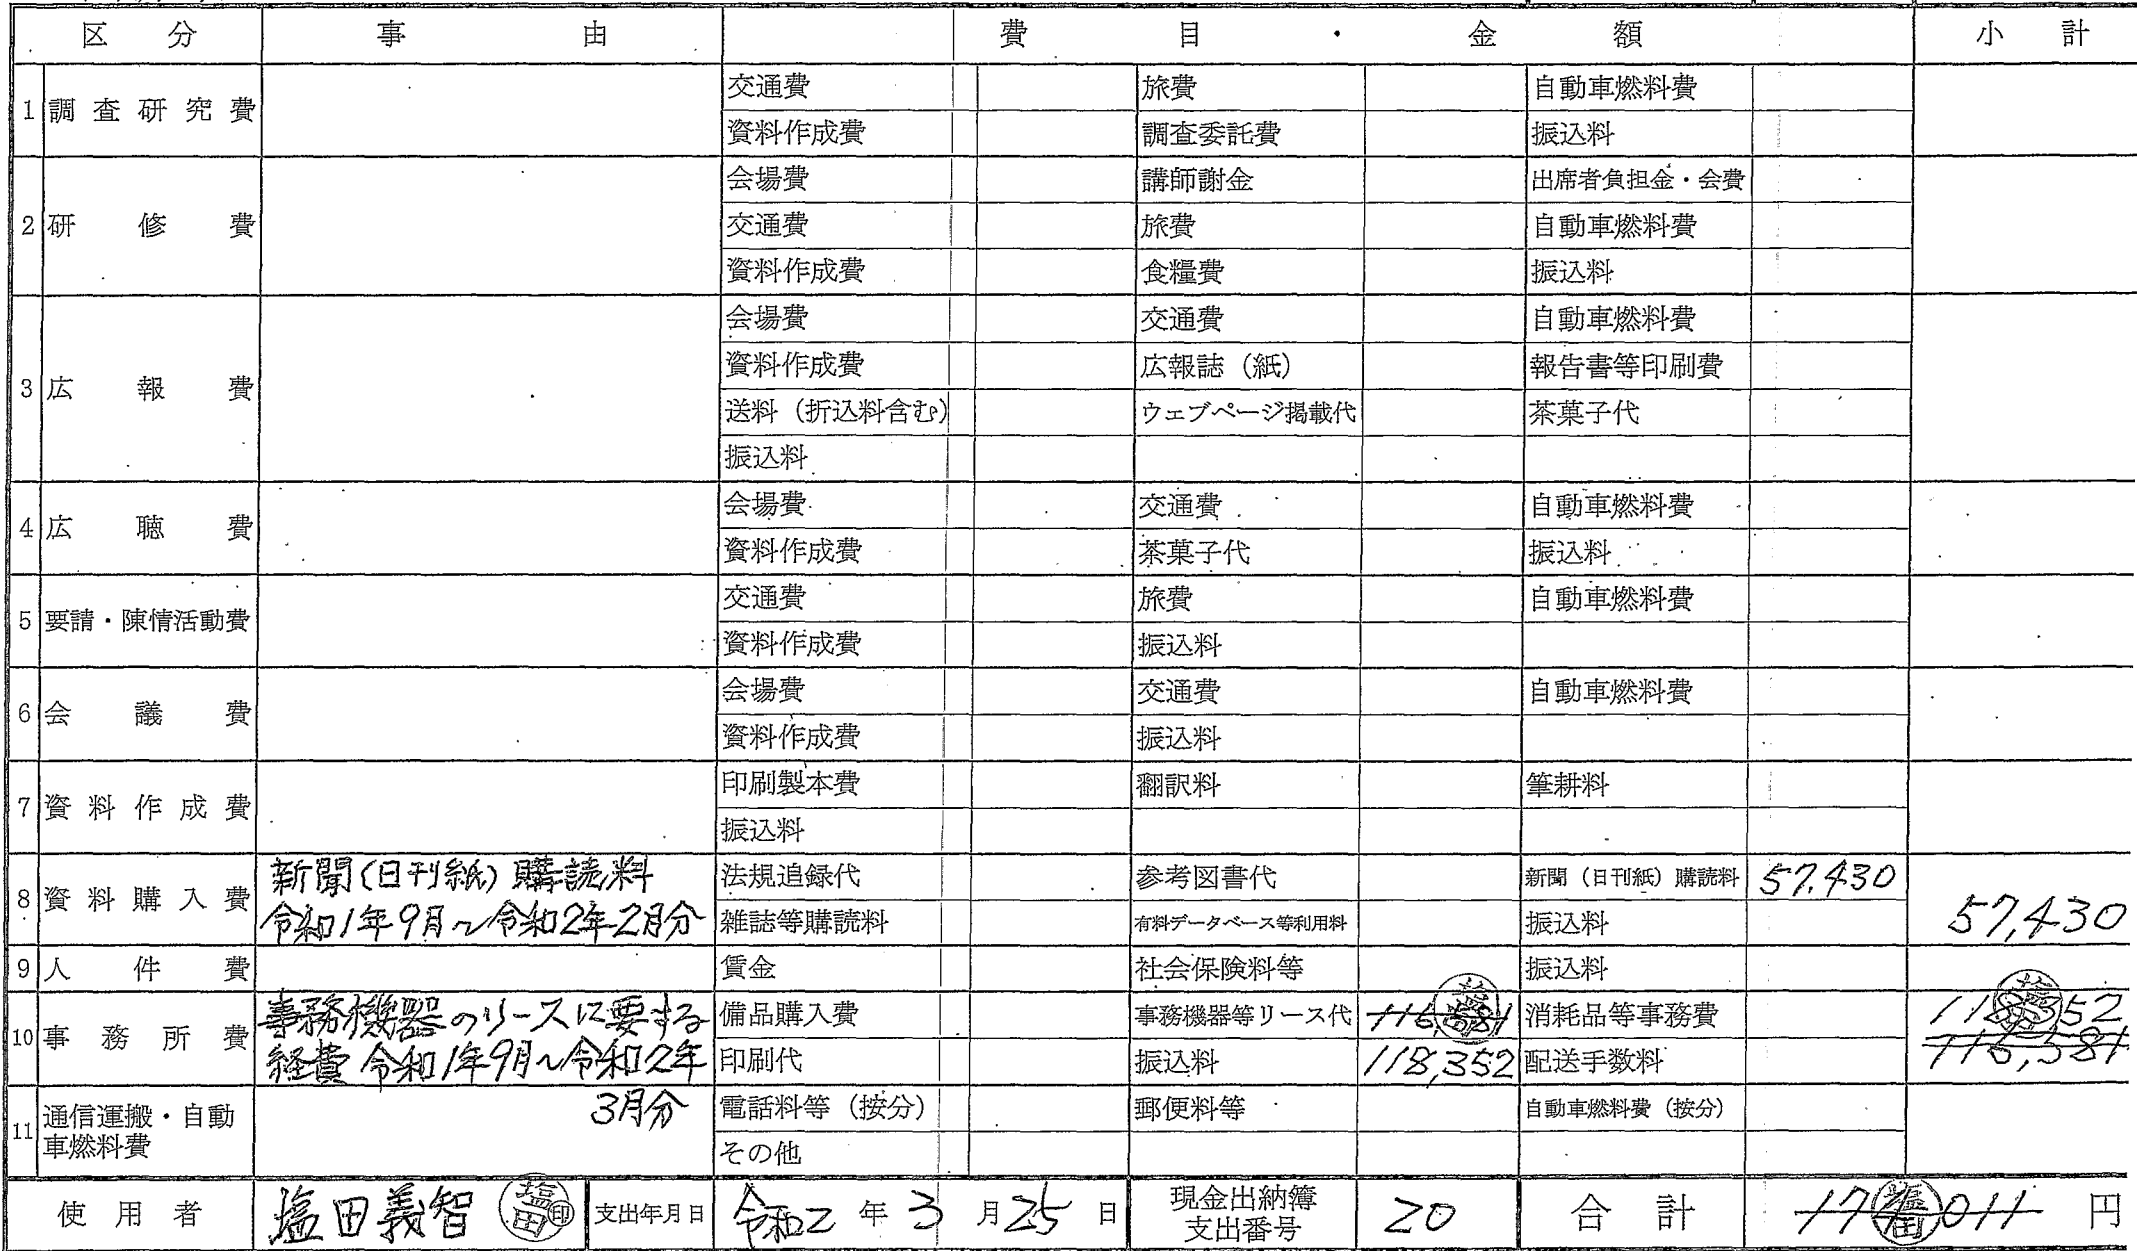 区 分 事 由 費 目 ・ 金 額 小 計
1 調査研究費 交通費 旅費 自動車燃料費
資料作成費 調査委託費 振込料
2 研修費 会場費 講師謝金 出席者負担金・会費
交通費 旅費 自動車燃料費
資料作成費 食糧費 振込料
3 広報費 会場費 交通費 自動車燃料費
資料作成費 広報誌（紙） 報告書等印刷費
送料（折込料含む） ウェブページ掲載代 茶菓子代
振込料
4 広聴費 会場費 交通費 自動車燃料費
資料作成費 茶菓子代 振込料
5 要請・陳情活動費 交通費 旅費 自動車燃料費
資料作成費 振込料
6 会議費 会場費 交通費 自動車燃料費
資料作成費 振込料
7 資料作成費 印刷製本費 翻訳料 筆耕料
振込料
8 資料購入費 新聞(日刊紙)購読料 法規追録代 参考図書代 新聞（日刊紙）購読料 57,430
令和1年9月～令和2年2月分 雑誌等購読料 有料データベース等利用料 振込料 57,430
9 人件費 賃金 社会保険料等 振込料
10 事務所費 事務機器のリースに要する 備品購入費 事務機器等リース代 116,581 消耗品等事務費 118,352
経費 令和1年9月～令和2年 印刷代 振込料 118,352 配送手数料 116,581
11 通信運搬・自動車燃料費 3月分 電話料等（按分） 郵便料等 自動車燃料費（按分）
その他
使用者 塩田義智 塩田印 支出年月日 令和2年3月25日 現金出納簿支出番号 20 合計 174,011 円